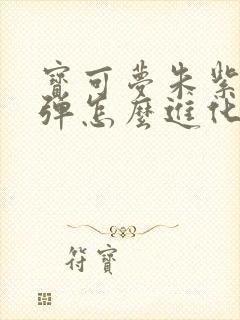 寶可夢朱紫
彈怎麼進化
符寶